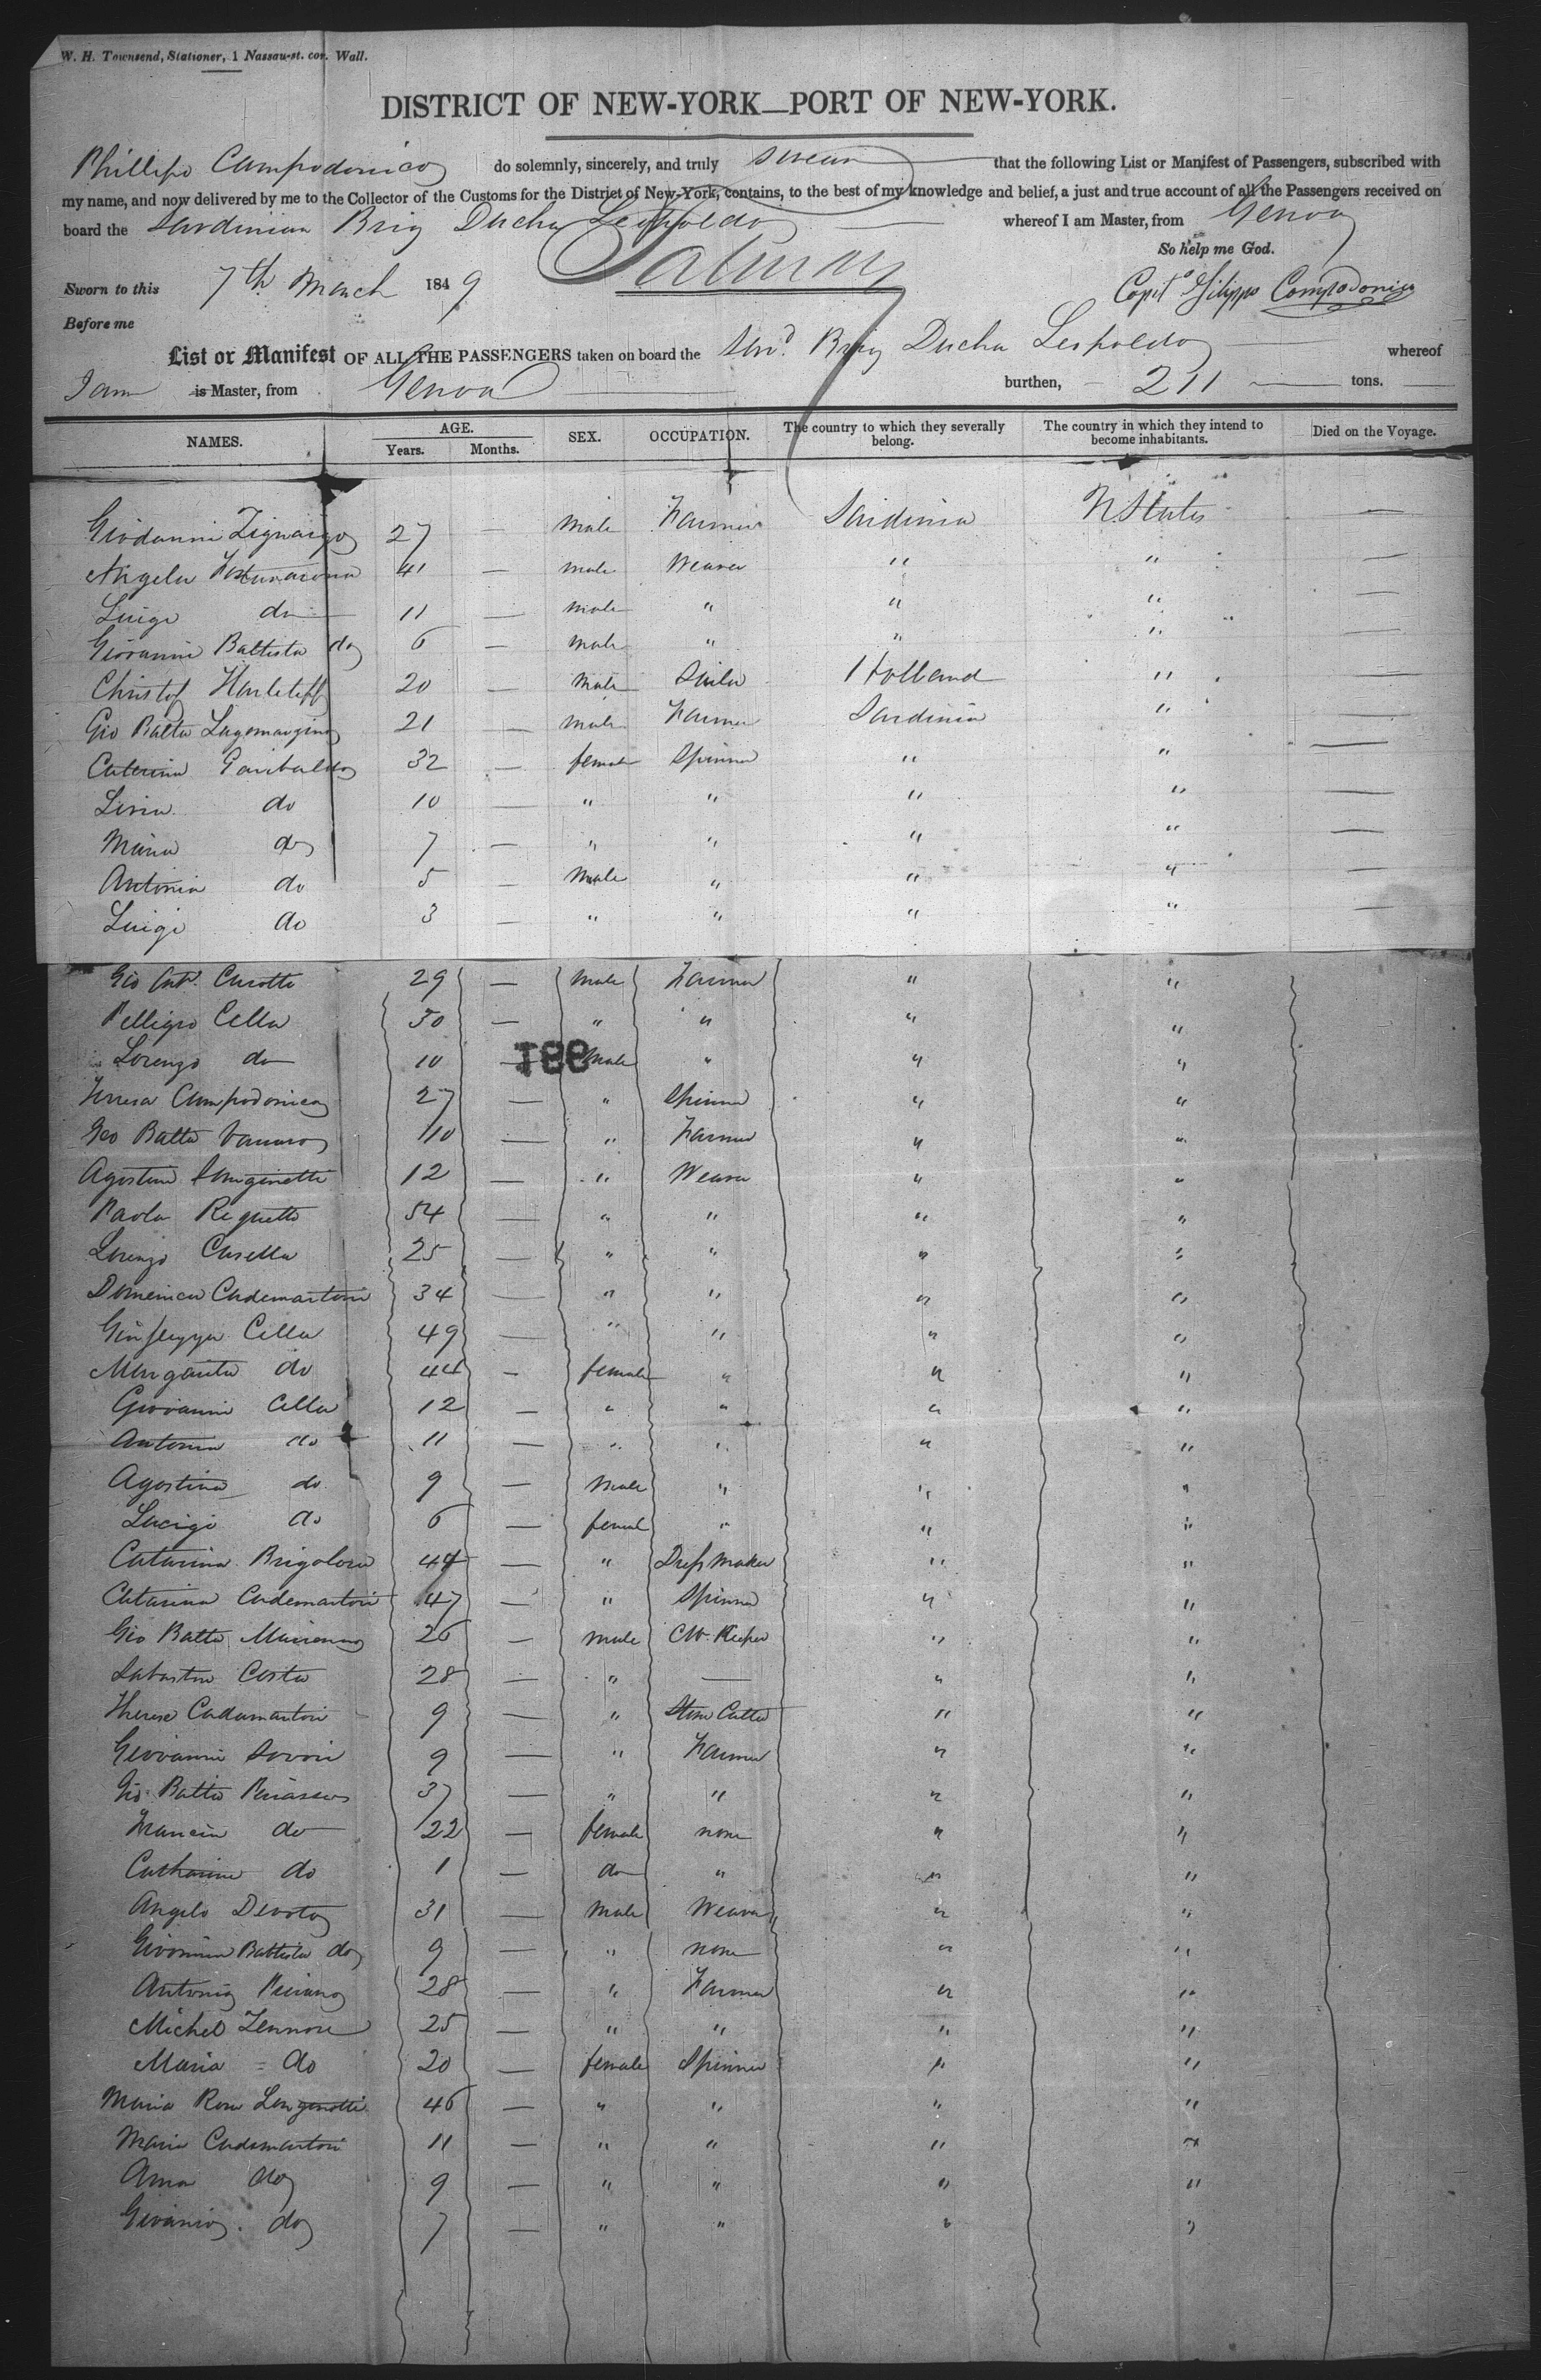 W. H. Townsend, Stationer, 1 Nassau-st. cor. Wall.
DISTRICT OF NEW-YORK—PORT OF NEW-YORK.
Phillipo Campodonico do solemnly, sincerely, and truly swear that the following List or Manifest of Passengers, subscribed with
my name, and now delivered by me to the Collector of the Customs for the District of New-York, contains, to the best of my knowledge and belief, a just and true account of all the Passengers received on
board the Sardinian Brig Ducha Leopoldo whereof I am Master, from Genoa
So help me God.
Sworn to this 7th March 1849 Capit Filippo Campodonico
Before me
List or Manifest OF ALL THE PASSENGERS taken on board the Sard. Brig Ducha Leopoldo whereof
I am is Master, from Genoa burthen, 211 tons.
NAMES. AGE. Years. Months. SEX. OCCUPATION. The country to which they severally belong. The country in which they intend to become inhabitants. Died on the Voyage.
Giodanni Zignaigo 27 — male Farmer Sardinia U. States —
Angelo 41 — male Weaver " " —
Luigi do 11 — male " " " —
Giovanni Battista do 6 — male " " " —
Christof 20 — male Sailor Holland " —
Gio Batta Lagomargino 21 — male Farmer Sardinia " —
Caterina Garibaldo 32 — female Spinner " " —
Livia do 10 — " " " " —
Maria do 7 — " " " " —
Antonia do 5 — Male " " " —
Luigi do 3 — " " " " —
Gio Ant. Curotto 29 — male Farmer " "
Pelligro Cella 50 — " " " "
Lorenzo do 10 — male " " "
188
Teresa Campodonico 27 — " Spinner " "
Geo Batta 110 — " Farmer " "
Agostino Longinetti 12 — " Weaver " "
Paola Reghetto 54 — " " " "
Lorenzo Casella 25 — " " " "
Domenica Cademartori 34 — " " " "
Cella 49 — " " " "
Margarita do 44 — female " " "
Giovanni Cella 12 — " " " "
Antonia do 11 — " " " "
Agostina do 9 — Male " " "
Luigi do 6 — female " " "
Catarina Brigolara 44 — " Dress Maker " "
Catarina Cademartori 47 — " Spinner " "
Gio Batta 26 — male Keeper " "
Sabastin Costa 28 — " — " "
Therese Cadamartori 9 — " Stone Cutter " "
Giovanni 9 — " Farmer " "
Gio Batta 37 — " " " "
do 22 — female none " "
Catharine do 1 — do " " "
Angelo Devoto 31 — Male Weaver " "
Giovanni Battista do 9 — " none " "
Antonio 28 — " Farmer " "
Michel Zennone 25 — " " " "
Maria do 20 — female Spinner " "
Maria Rosa Longinotti 46 — " " " "
Maria Cadamartori 11 — " " " "
Anna do 9 — " " " "
do 7 — " " " "